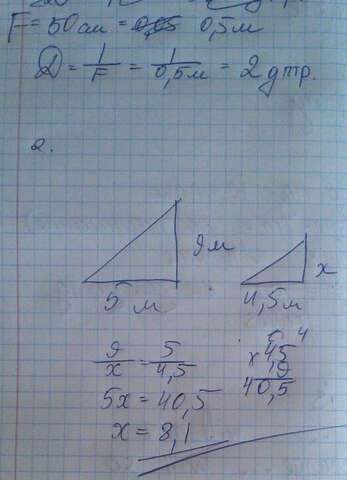 F = 50 см = 0,05 0,5 м
D = 1/F = 1/0,5м = 2 дптр.
2.
9 м
5 м
x
4,5 м
9/x = 5/4,5
5x = 40,5
x = 8,1
4
x 4,5
9
40,5